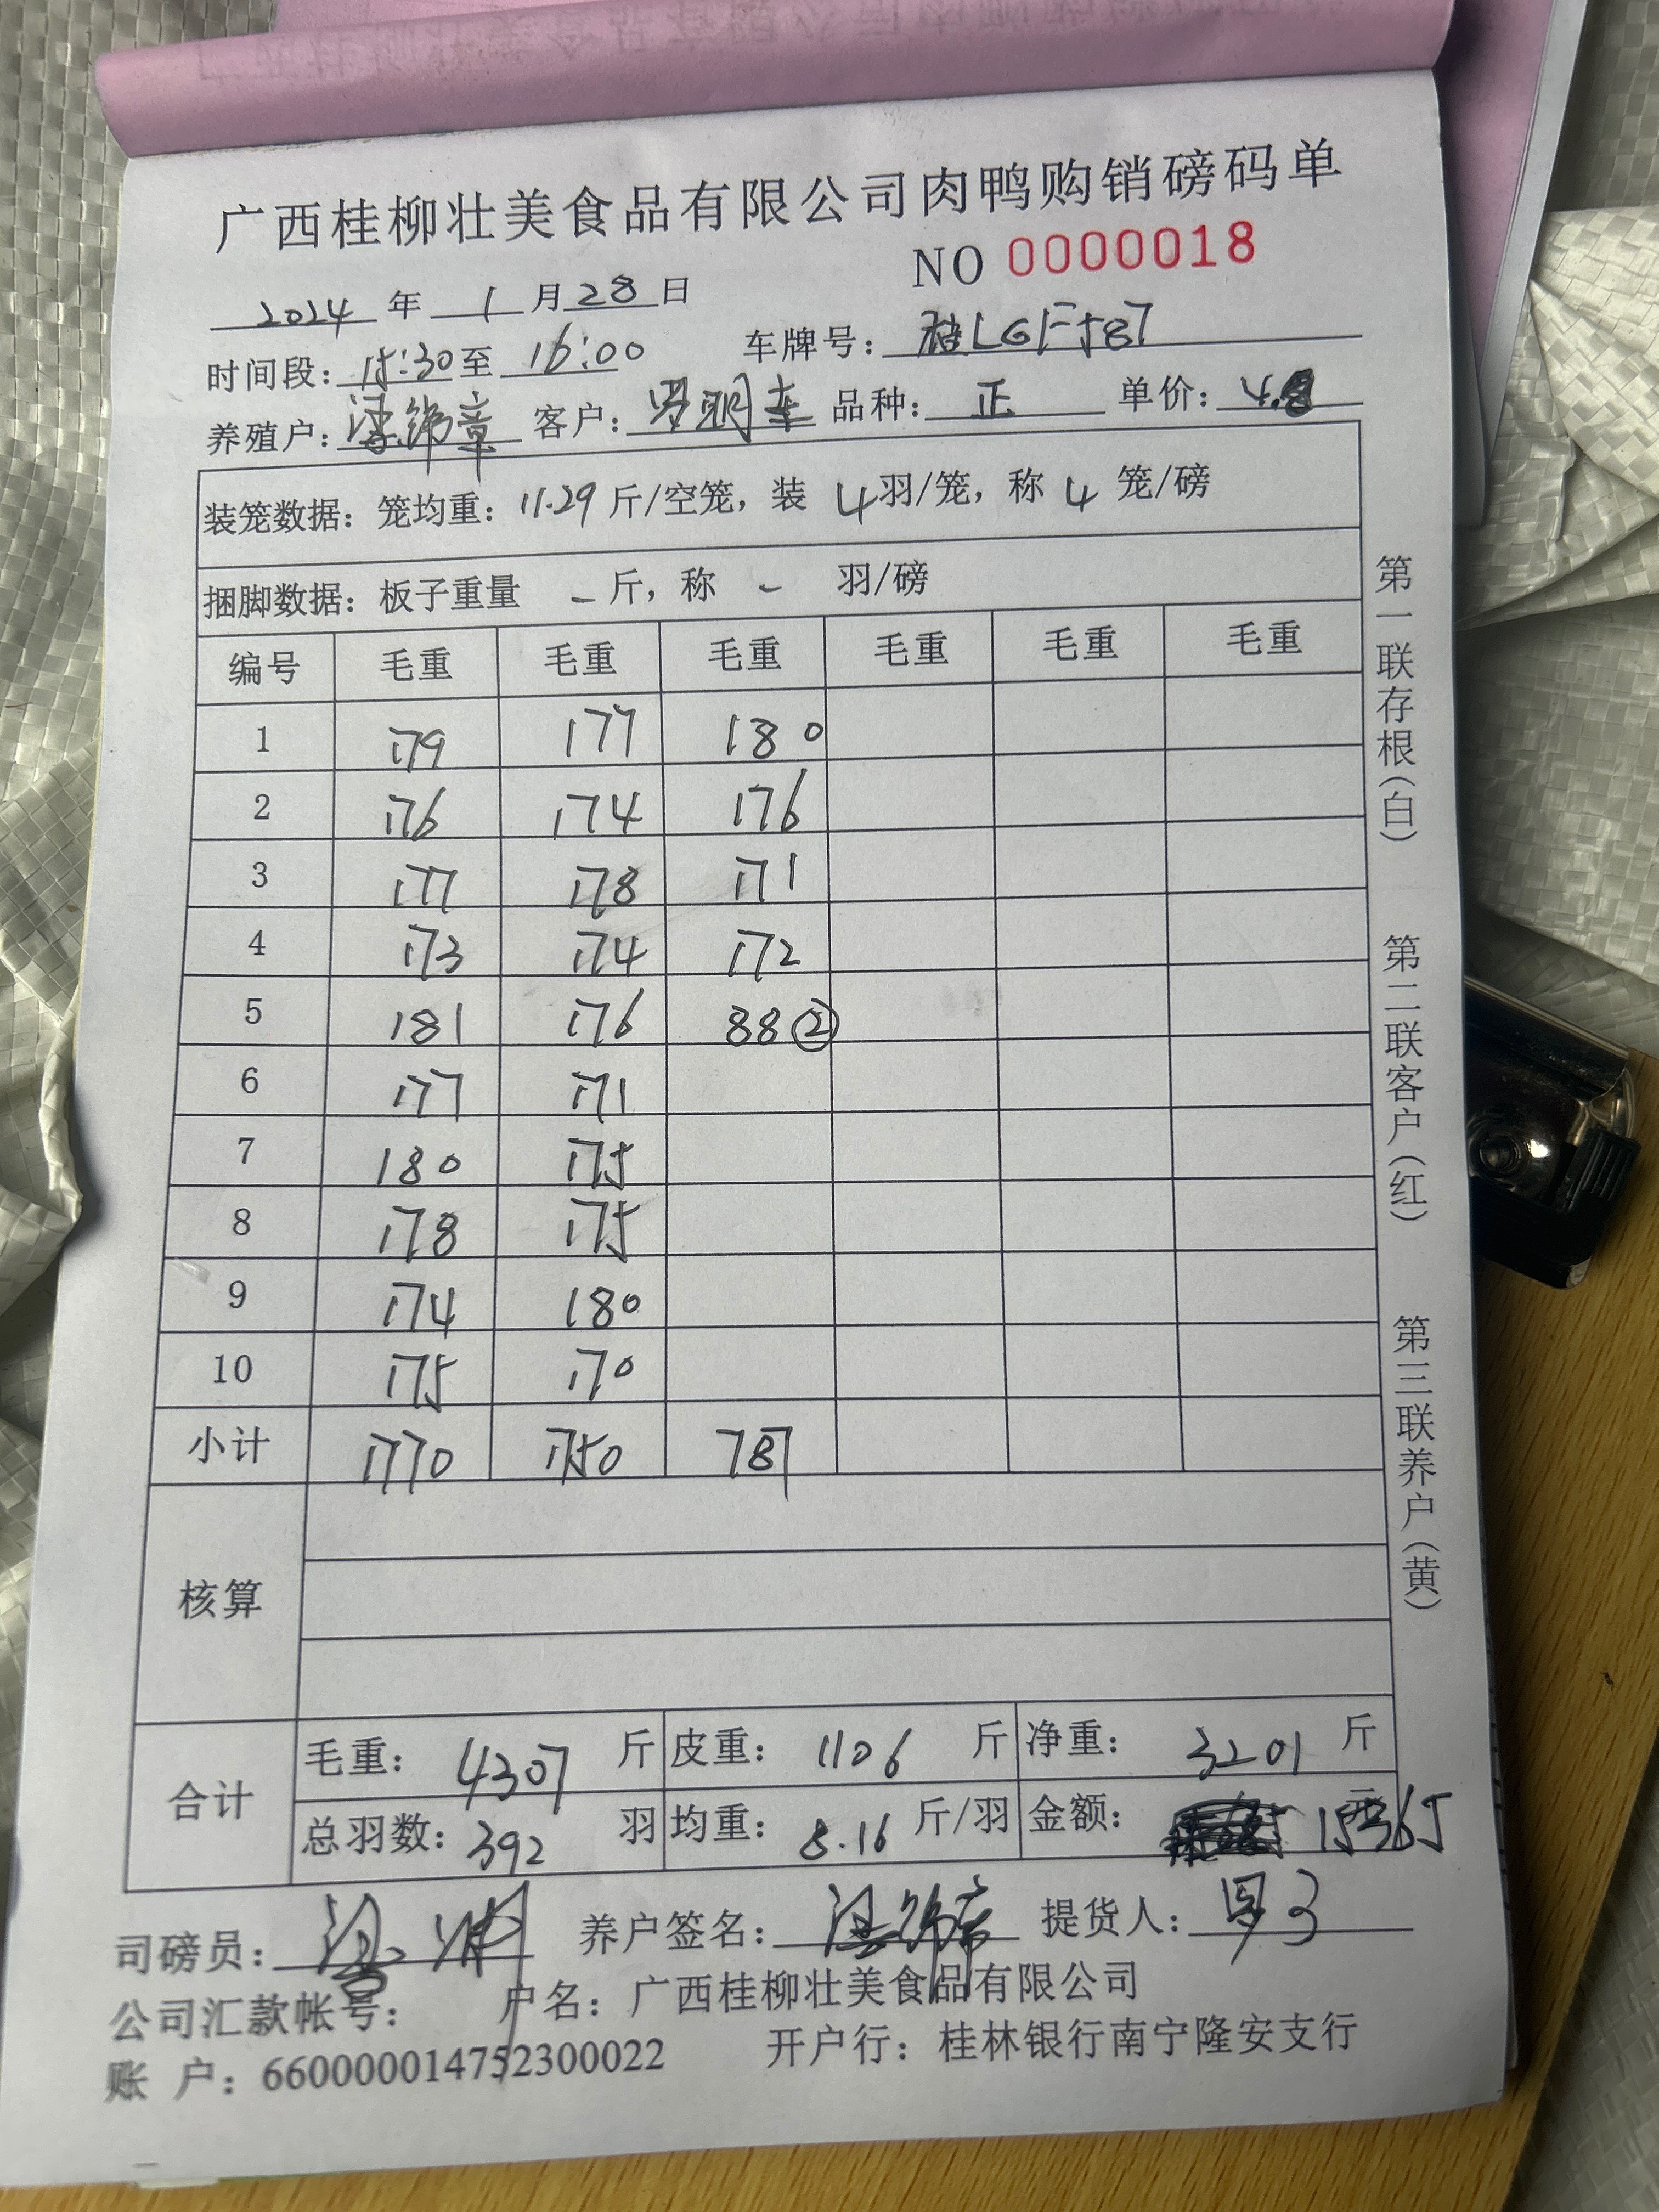 广西桂柳壮美食品有限公司肉鸭购销磅码单
NO 0000018
2024 年 1 月 28 日
时间段: 15:30 至 16:00 车牌号: 桂LGF587
养殖户: 客户: 罗明 品种: 正 单价: 4.8
装笼数据: 笼均重: 11.29 斤/空笼, 装 4 羽/笼, 称 4 笼/磅
捆脚数据: 板子重量 - 斤, 称 - 羽/磅
编号 毛重 毛重 毛重 毛重 毛重 毛重
1 179 177 180
2 176 174 176
3 177 178 171
4 173 174 172
5 181 176 88 ②
6 177 171
7 180 175
8 178 175
9 174 180
10 175 170
小计 1770 1750 787
核算
合计 毛重: 4307 斤 皮重: 1106 斤 净重: 3201 斤
总羽数: 392 羽 均重: 8.16 斤/羽 金额: 15365 元
司磅员: 养户签名: 提货人:
公司汇款帐号: 户名: 广西桂柳壮美食品有限公司
账 户: 660000014752300022 开户行: 桂林银行南宁隆安支行
第一联存根(白) 第二联客户(红) 第三联养户(黄)